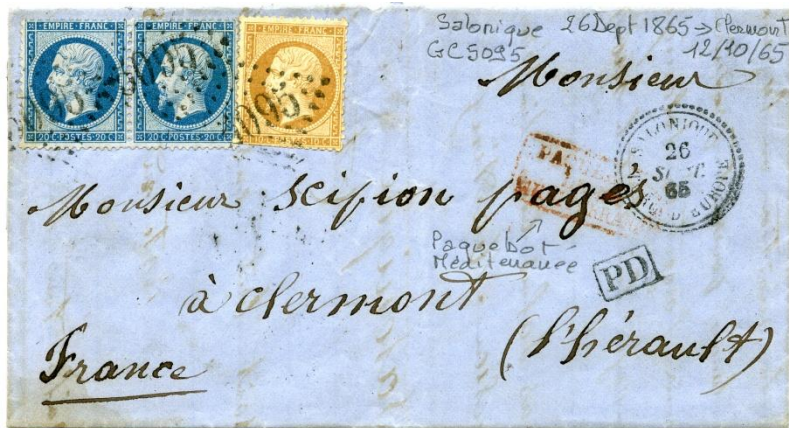 EMPIRE FRANC
20 C POSTES 20 C
EMPIRE FRANC
20 C POSTES 20 C
EMPIRE FRANC
10 C POSTES 10 C
5095
5095
5095
Salonique 26 Sept 1865 → Clermont
GC 5095 12/10/65
Monsieur
SALONIQUE
26
SEPT.
65
TURQ. D'EUROPE
Monsieur Scipion pages
Paquebot
Méditerranée
PD
à clermont
(l'hérault)
France